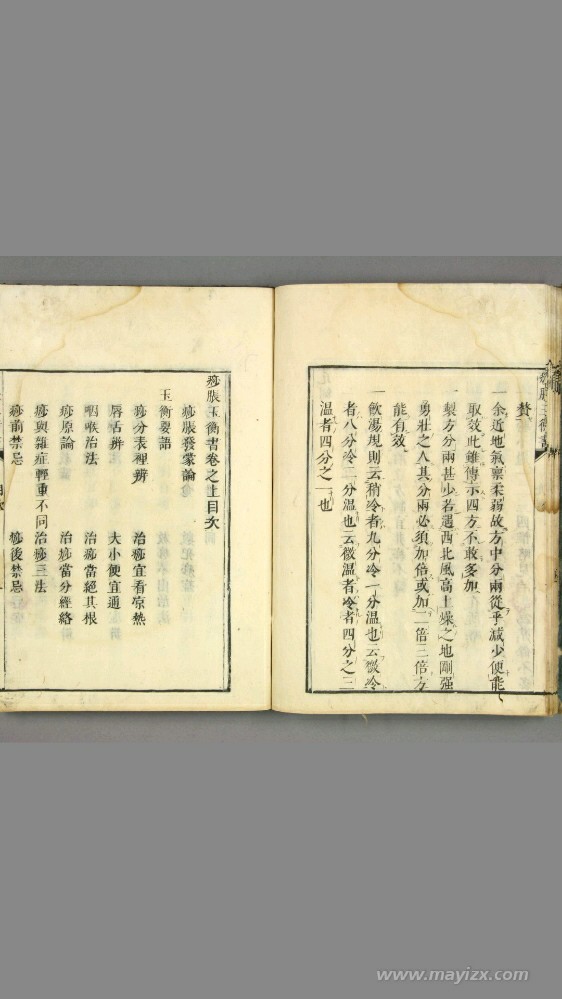 痧脹玉衡書
贅
余近地氣禀柔弱故方中分兩從乎減少便能
取效此雖傳示四方不敢多加
一製方分兩甚少若遇西北風高土燥之地剛强
勇壯之人其分兩必須加倍或加二倍三倍方
能有效
一飲湯規則云稍冷者九分冷一分溫也云微冷
者八分冷二分溫也云微溫者冷者四分之三
溫者四分之一也
痧脹玉衡書卷之上目次
痧脹發蒙論
玉衡要語
痧分表裡辨 治痧宜看凉熱
唇舌辨 大小便宜通
咽喉治法 治痧當絕其根
痧原論 治痧當分經絡
痧與雜症輕重不同 治痧三法
痧前禁忌 痧後禁忌
www.mayizx.com